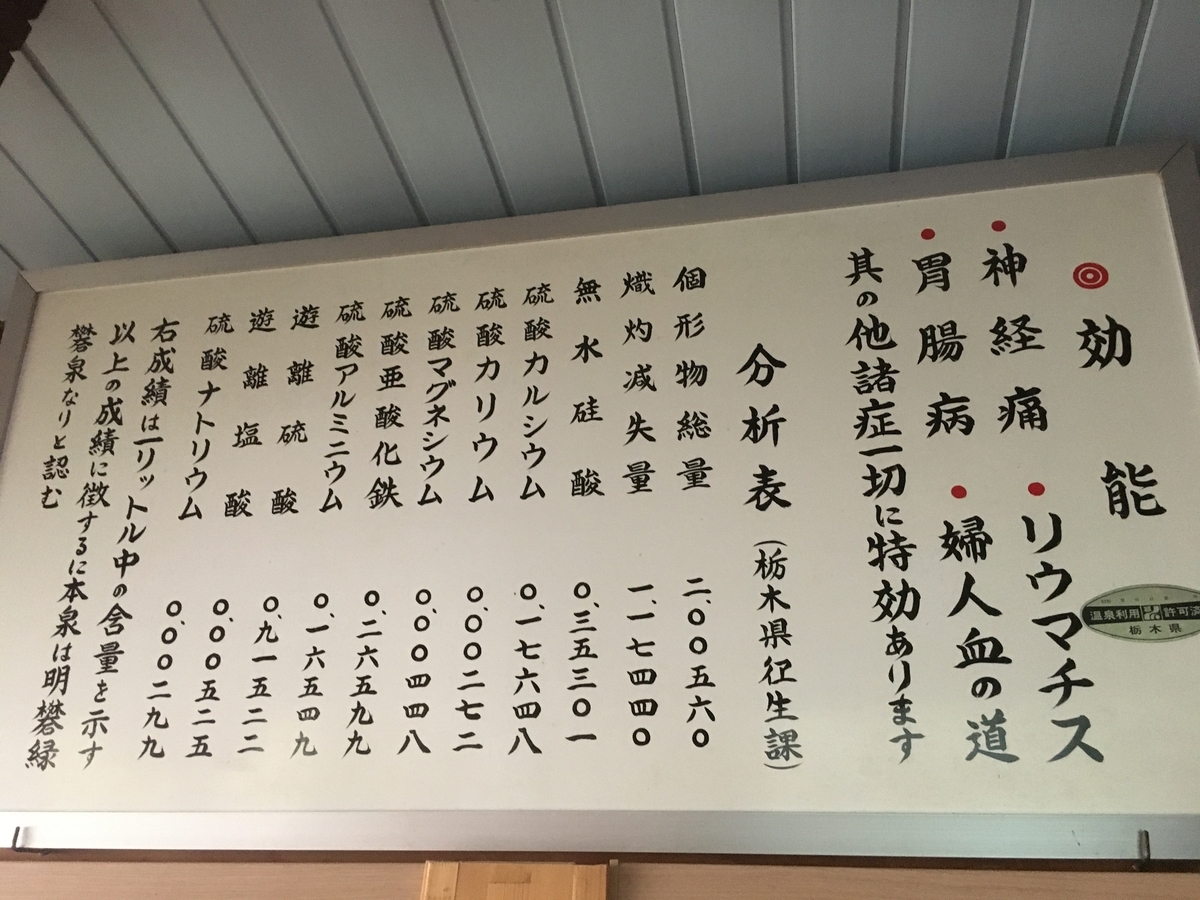 ◎効能
・神経痛 ・リウマチス
・胃腸病 ・婦人血の道
其の他諸症一切に特効あります
分析表(栃木県征生課)
個形物総量 二、〇〇五六〇
熾灼減失量 一、一七四四〇
無水硅酸 〇、三五三〇一
硫酸カルシウム 〇、一七六四八
硫酸カリウム 〇、〇〇二七二
硫酸マグネシウム 〇、〇〇四四八
硫酸亜酸化鉄 〇、二六五九九
硫酸アルミニウム 〇、一六五四九
遊離硫酸 〇、九一五二二
遊離塩酸 〇、〇〇五二五
硫酸ナトリウム 〇、〇〇二九九
右成績は一リットル中の含量を示す
以上の成績に徴するに本泉は明礬緑
礬泉なりと認む
温泉利用許可済
栃木県